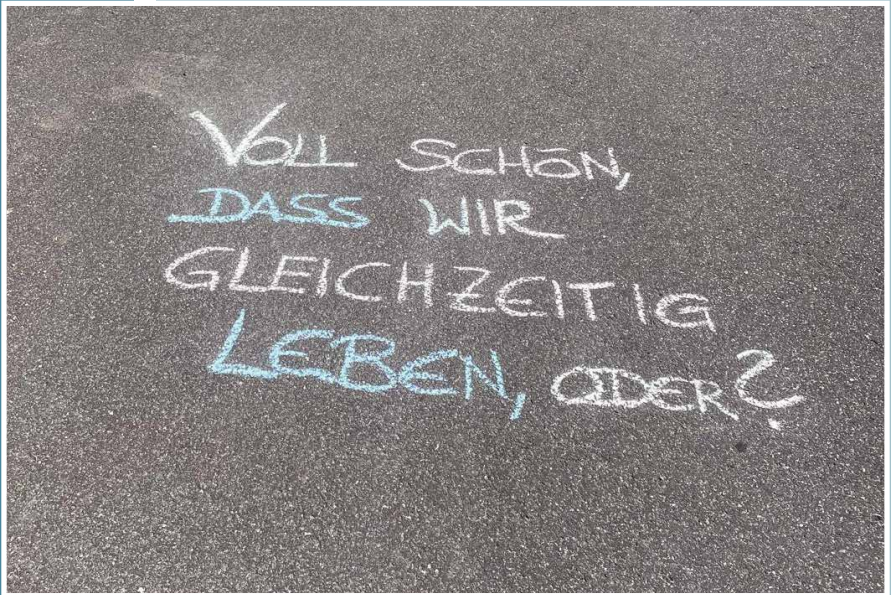 VOLL SCHÖN,
DASS WIR
GLEICHZEITIG
LEBEN, ODER?